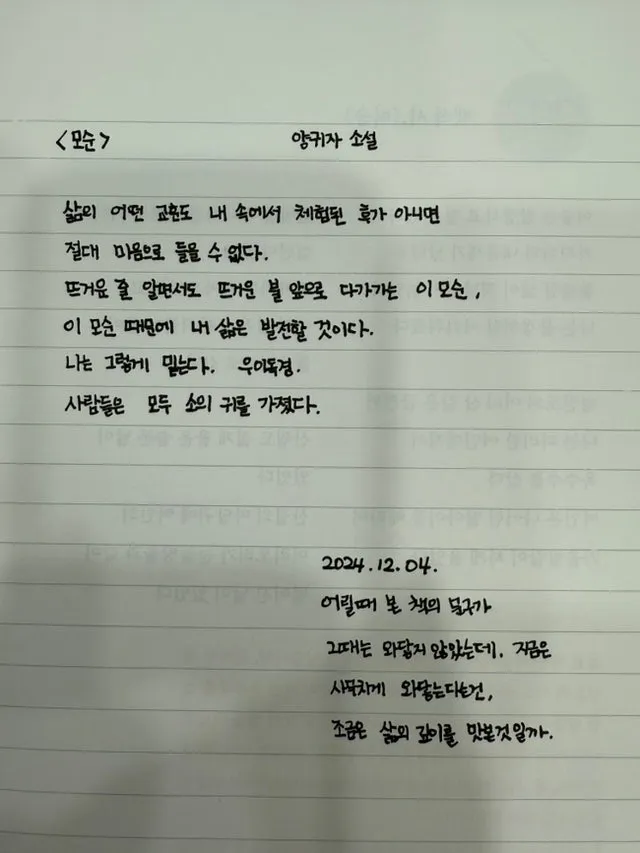 <모순> 양귀자 소설
삶의 어떤 교훈도 내 속에서 체험된 후가 아니면
절대 마음으로 들을 수 없다.
뜨거운 줄 알면서도 뜨거운 불 앞으로 다가가는 이 모순,
이 모순 때문에 내 삶은 발전할 것이다.
나는 그렇게 믿는다. 우이독경.
사람들은 모두 소의 귀를 가졌다.
2024.12.04.
어릴때 본 책의 글구가
그때는 와닿지 않았는데, 지금은
사무치게 와닿는다는건,
조금은 삶의 깊이를 맛본것일까.